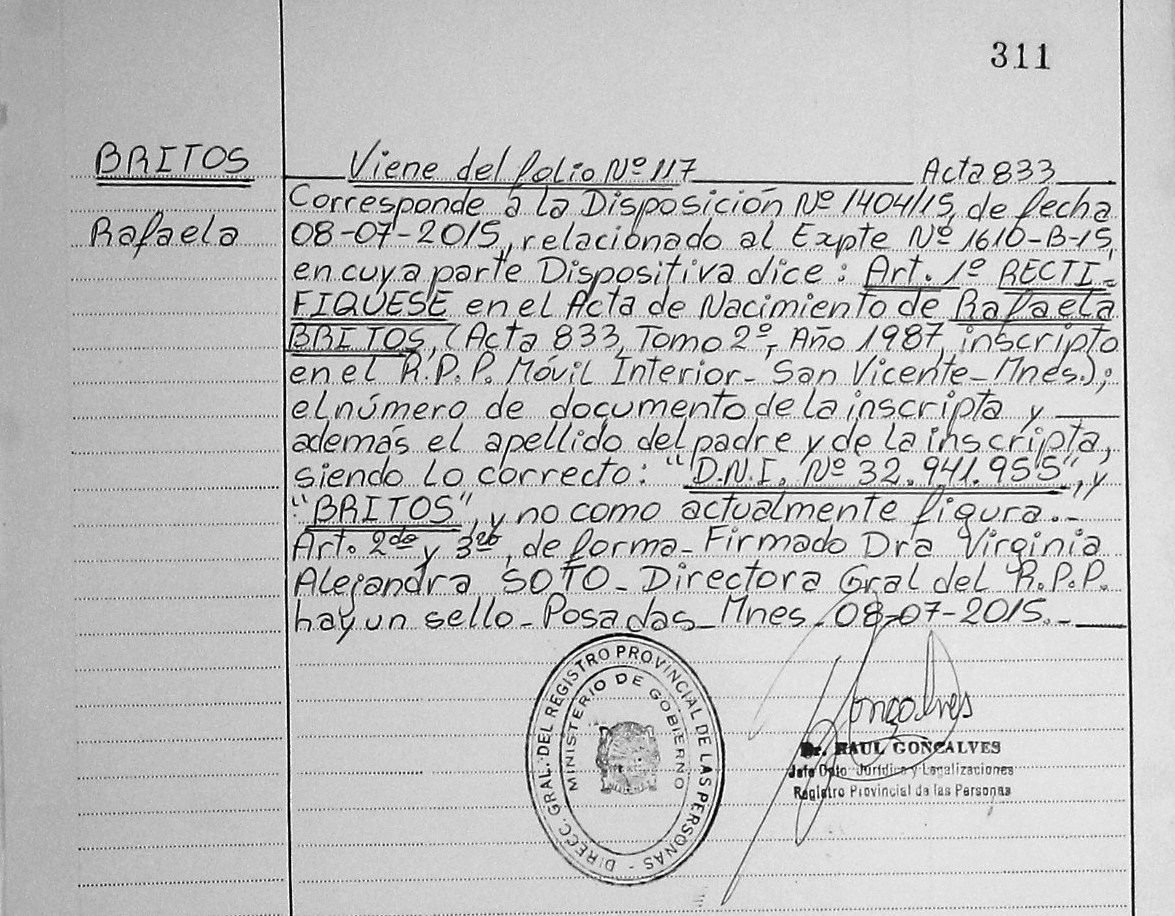 311
BRITOS
Rafaela
Viene del folio Nº 117 Acta 833
Corresponde a la Disposición Nº 1404/15, de fecha
08-07-2015, relacionado al Expte Nº 1610-B-15,
en cuya parte Dispositiva dice: Art. 1º RECTI-
FIQUESE en el Acta de Nacimiento de Rafaela
BRITOS, (Acta 833, Tomo 2º, Año 1987, inscripto
en el R.P.P. Móvil Interior - San Vicente - Mnes.);
el número de documento de la inscripta y
además el apellido del padre y de la inscripta,
siendo lo correcto: "D.N.I. Nº 32.941.955", y
"BRITOS", y no como actualmente figura.-
Art. 2do y 3ro, de forma - Firmado Dra Virginia
Alejandra SOTO - Directora Gral del R.P.P.
hay un sello - Posadas - Mnes - 08-07-2015.-
DIRECC. GRAL. DEL REGISTRO PROVINCIAL DE LAS PERSONAS -
MINISTERIO DE GOBIERNO
Gonçalves
Dr. RAUL GONCALVES
Jefe Dpto. Jurídico y Legalizaciones
Registro Provincial de las Personas